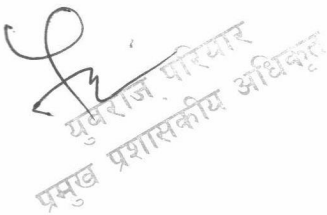 युवराज परियार
प्रमुख प्रशासकीय अधिकृत